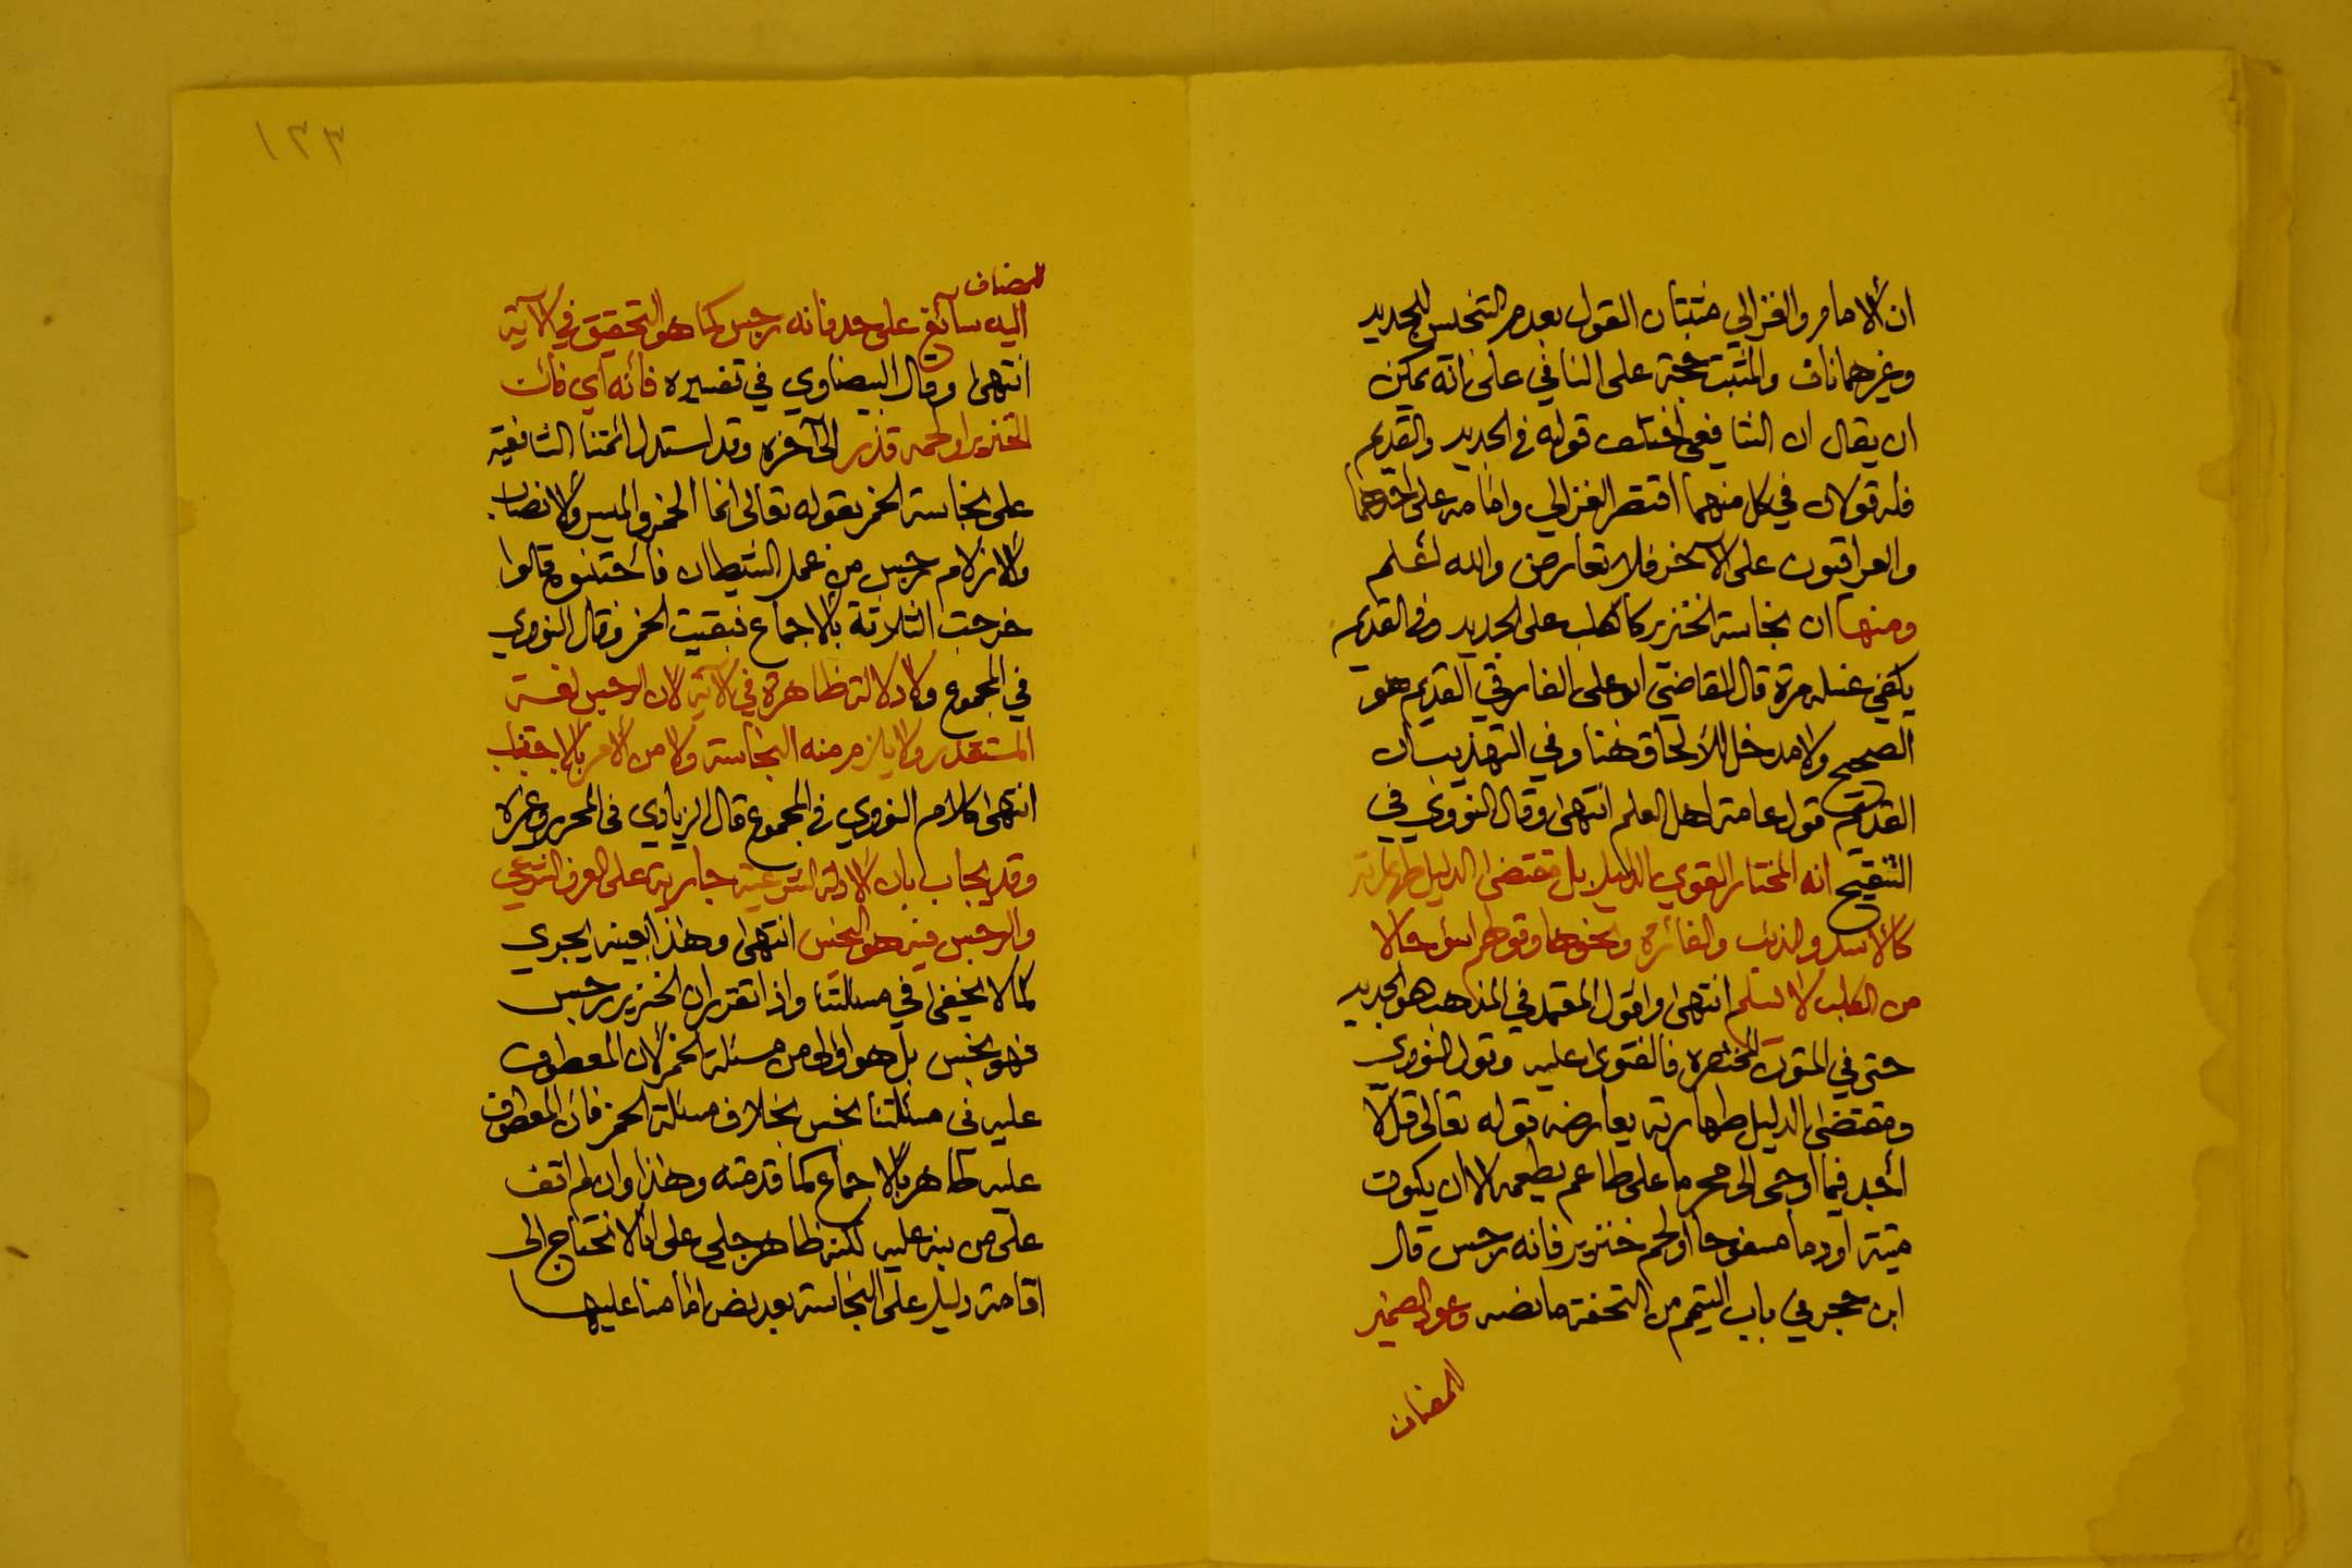 ان الامام والغزالي مثبتان القول بعدم التنجس للجديد
وغيرهما ناف والمثبت حجة على النافي على انه يمكن
ان يقال ان الشافعي اختلف قوله في الجديد والقديم
فله قولان في كل منهما اقتصر الغزالي وامامه على احدهما
والعراقيون على الآخر فلا تعارض والله اعلم
ومنها ان نجاسة الخنزير كالكلب على الجديد وفي القديم
يكفي غسله مرة قال القاضي ابو على الفارقي القديم هو
الصحيح ولا مدخل للالحاق هنا وفي التهذيب ان
القديم قول عامة اهل العلم انتهى وقال النووي في
التنقيح انه المختار القوي بالدليل بل مقتضى الدليل طهارته
كالاسد والذئب والفأرة ونحوها وقولهم اسؤ حالا
من الكلب لا نسلم انتهى واقول المعتمد في المذهب هو الجديد
حتى في المتون المختصرة فالفتوى عليه وقول النووي
ومقتضى الدليل طهارته يعارضه قوله تعالى قل لا
أجد فيما اوحى الى محرما على طاعم يطعمه الا ان يكون
ميتة او دما مسفوحا او لحم خنزير فانه رجس قال
ابن حجر في باب التيمم من التحفة ما نصه وعود الضمير
للمضاف
١٢٣
للمضاف
اليه سائغ على حد فانه رجس كما هو التحقيق في الآية
انتهى وقال البيضاوي في تفسيره فانه اي فان
الخنزير او لحمه قذر الى آخره وقد استدل ائمتنا الشافعية
على نجاسة الخمر بقوله تعالى انما الخمر والميسر والانصاب
والازلام رجس من عمل الشيطان فاجتنبوه قالوا
خرجت الثلاثة بالاجماع فبقيت الخمر فقال النووي
في المجموع ولا دلالة ظاهرة في الآية لان الرجس لغة
المستقذر ولا يلزم منه النجاسة ولا من الامر بالاجتناب
انتهى كلام النووي في المجموع قال الزيادي في المحرر وغيره
وقد يجاب بان الادلة الشرعية جارية على العرف الشرعي
والرجس فيه هو النجس انتهى وهذا بعينه يجري
كما لا يخفى في مسألتنا واذا تقرر ان الخنزير رجس
فهو نجس بل هو اولى من مسئلة الخمر لان المعطوف
عليه في مسئلتنا نجس بخلاف مسئلة الخمر فان المعطوف
عليه طاهر بالاجماع كما قدمته وهذا وان لم اقف
على من نبه عليه لكنه ظاهر جلي على انا لا نحتاج الى
اقامة دليل على النجاسة بعد نص امامنا عليها